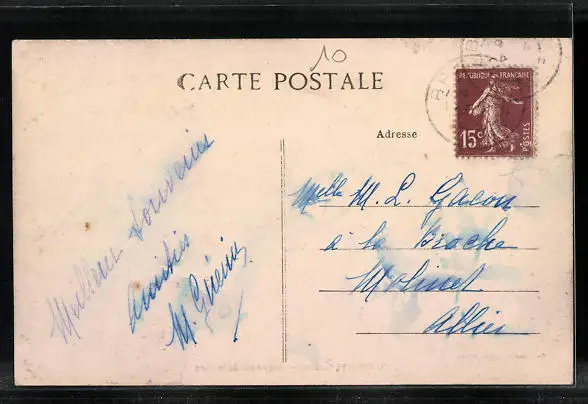 10
CARTE POSTALE
REPUBLIQUE FRANÇAISE
15c
POSTES
Adresse
Meilleur Souvenir
Amitiés
M. Guérin
Melle M. L. Gacon
à la Broche
Molinet
Allier